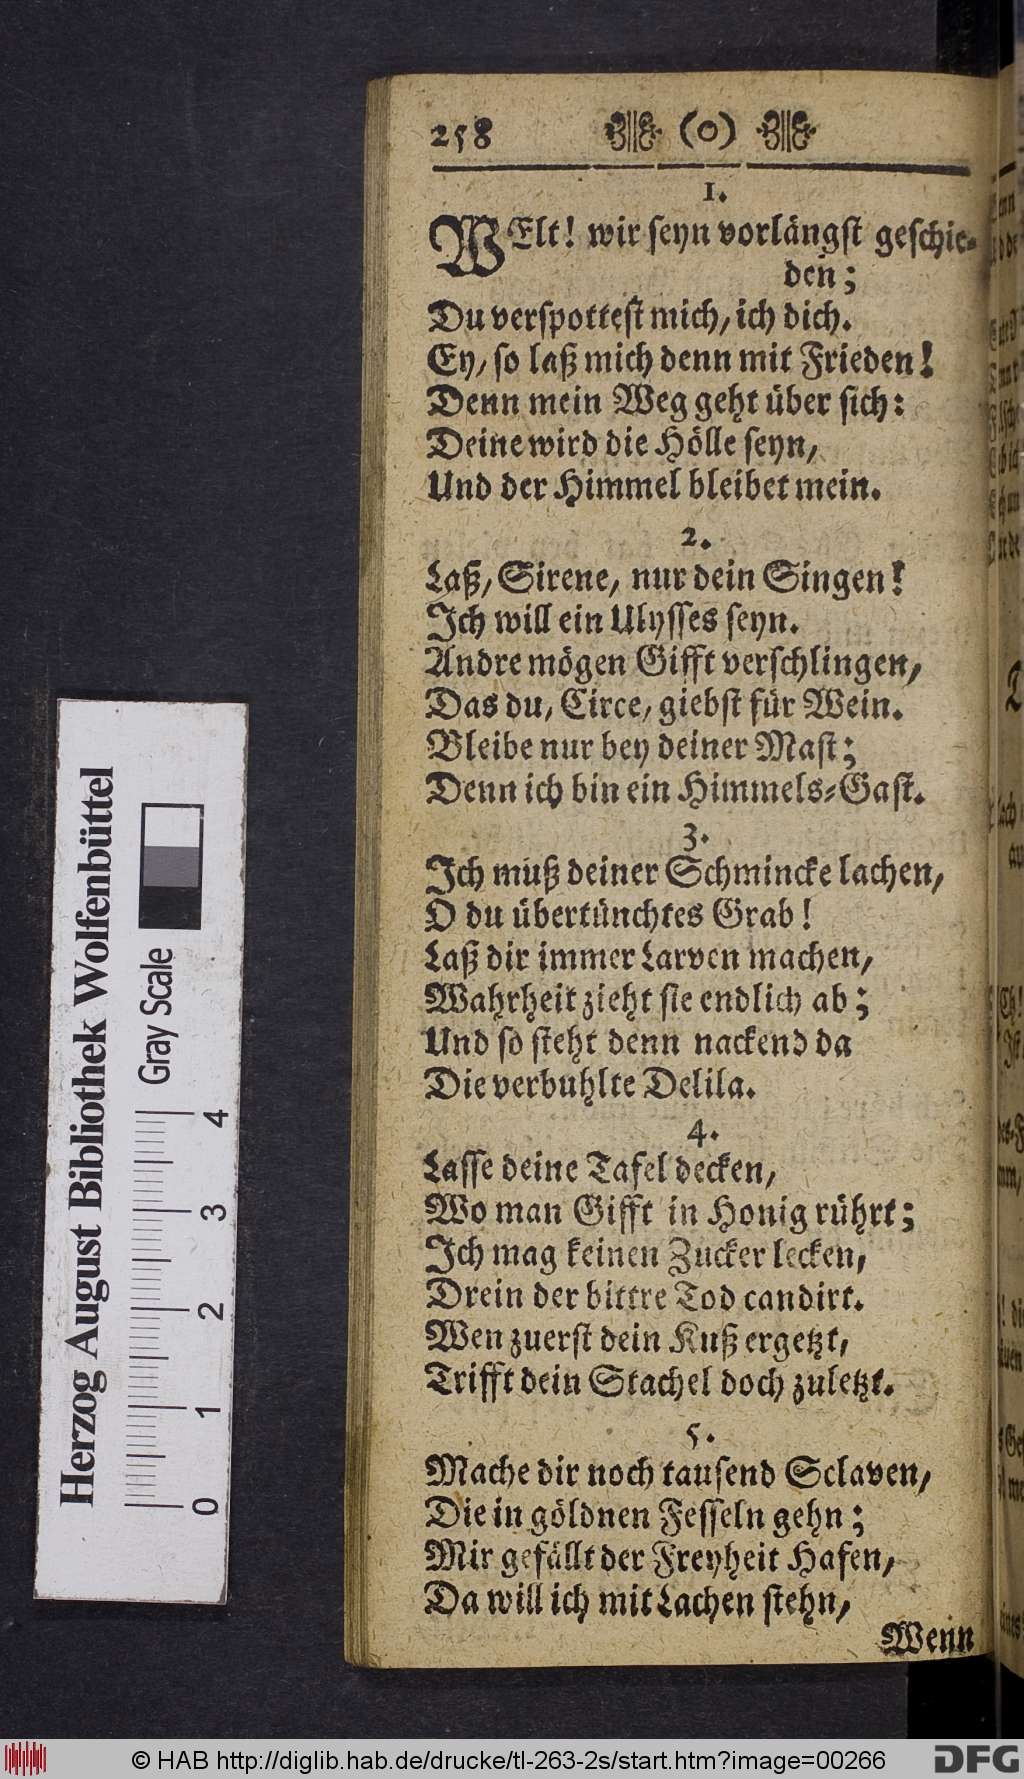 258 (o)
1.
WElt! wir seyn vorlängst geschie-
den;
Du verspottest mich, ich dich.
Ey, so laß mich denn mit Frieden!
Denn mein Weg geht über sich:
Deine wird die Hölle seyn,
Und der Himmel bleibet mein.
2.
Laß, Sirene, nur dein Singen!
Ich will ein Ulysses seyn.
Andre mögen Gifft verschlingen,
Das du, Circe, giebst für Wein.
Bleibe nur bey deiner Mast;
Denn ich bin ein Himmels-Gast.
3.
Ich muß deiner Schmincke lachen,
O du übertünchtes Grab!
Laß dir immer Larven machen,
Wahrheit zieht sie endlich ab;
Und so steht denn nackend da
Die verbuhlte Delila.
4.
Lasse deine Tafel decken,
Wo man Gifft in Honig rührt;
Ich mag keinen Zucker lecken,
Drein der bittre Tod candirt.
Wen zuerst dein Kuß ergetzt,
Trifft dein Stachel doch zuletzt.
5.
Mache dir noch tausend Sclaven,
Die in göldnen Fesseln gehn;
Mir gefällt der Freyheit Hafen,
Da will ich mit Lachen stehn,
Wenn
Herzog August Bibliothek Wolfenbüttel
Gray Scale
0 1 2 3 4
© HAB http://diglib.hab.de/drucke/tl-263-2s/start.htm?image=00266
DFG